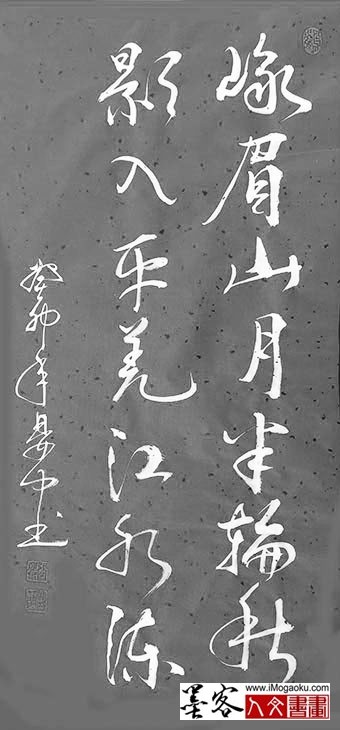 峨眉山月半輪秋
影入平羌江水流
癸卯年
www.iMogaoku.com
墨客 人文書畫